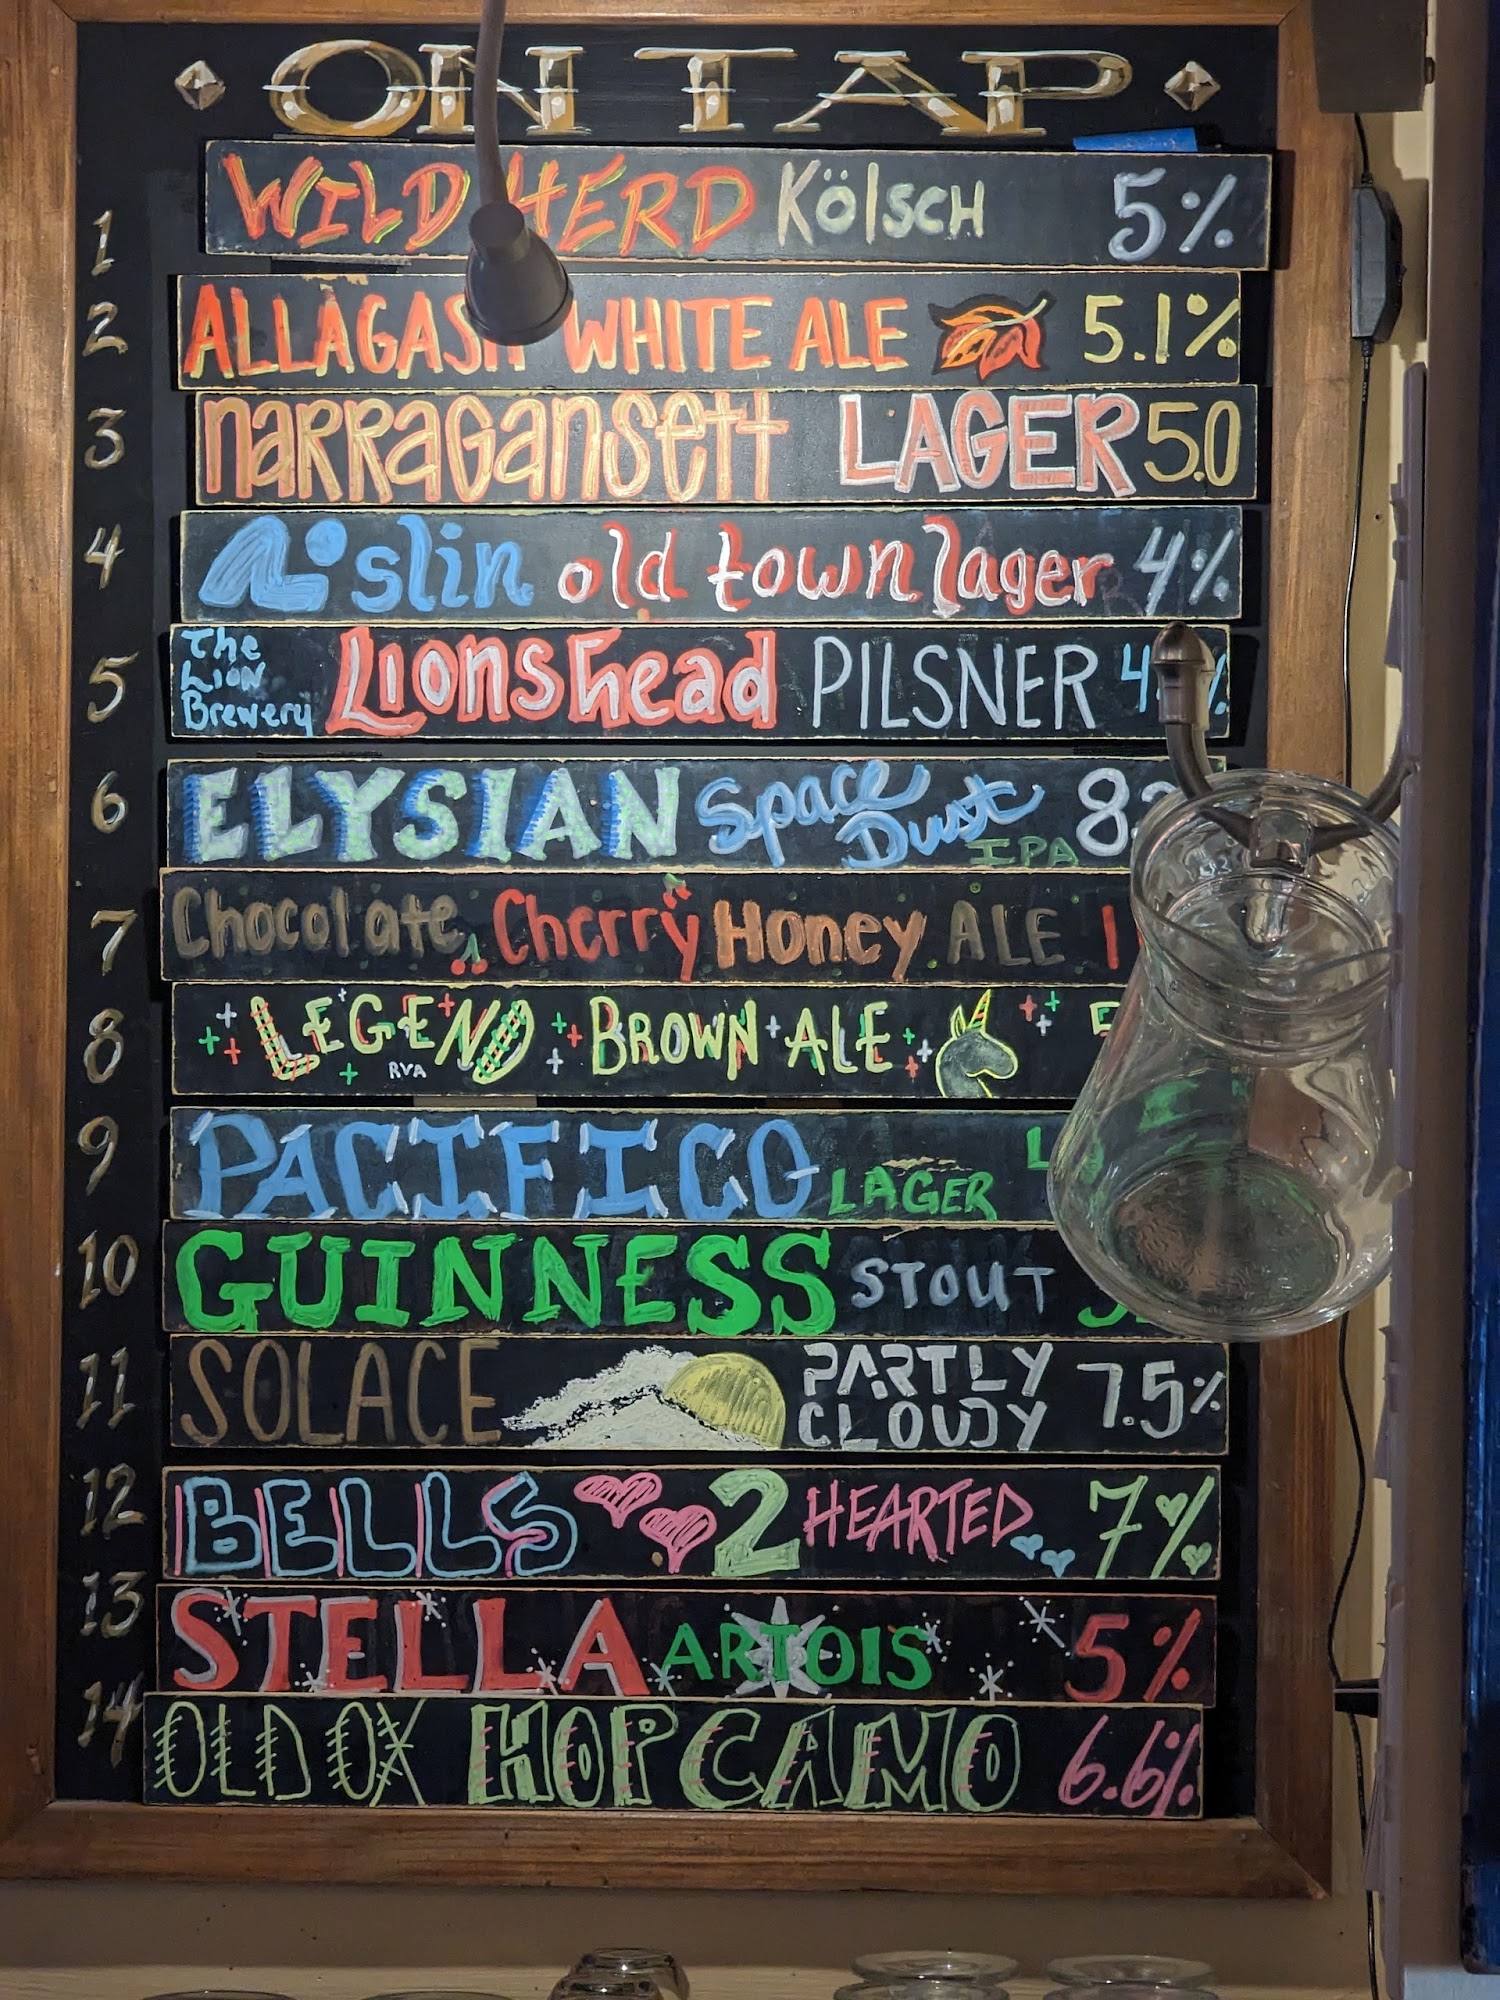 ON TAP
1 WILD HERD Kölsch 5%
2 ALLAGASH WHITE ALE 5.1%
3 narragansett LAGER 5.0
4 A'slin old town lager 4%
5 The Lion Brewery Lionshead PILSNER
6 ELYSIAN Space Dust IPA
7 Chocolate Cherry Honey ALE
8 LEGEND RVA BROWN ALE
9 PACIFICO LAGER
10 GUINNESS STOUT
11 SOLACE PARTLY CLOUDY 7.5%
12 BELLS 2 HEARTED 7%
13 STELLA ARTOIS 5%
14 OLD OX HOP CAMO 6.6%